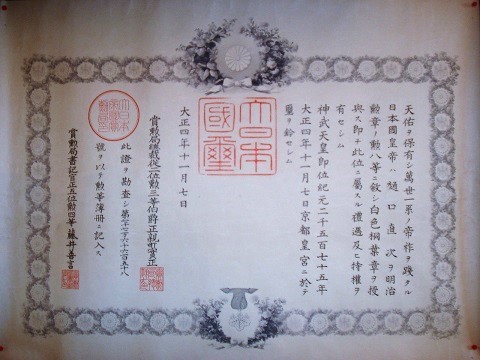 天佑ヲ保有シ萬世一系ノ帝祚ヲ踐タル
日本國皇帝ハ樋口直次ヲ明治
勲章ノ勲八等ニ敘シ白色桐葉章ヲ授
與ス即チ此位ニ屬スル禮遇及ヒ特權ヲ
有セシム
神武天皇即位紀元二千五百七十五年
大正四年十一月七日京都皇宮ニ於テ
璽ヲ鈐セシム
大日本國璽
大正四年十一月七日
賞勲局總裁從二位勲三等伯爵正親町實正
此證ヲ勘査シ第六十六百五十八
號ヲ以テ勲等簿冊ニ記入ス
賞勲局書記官正五位勲四等藤井善言